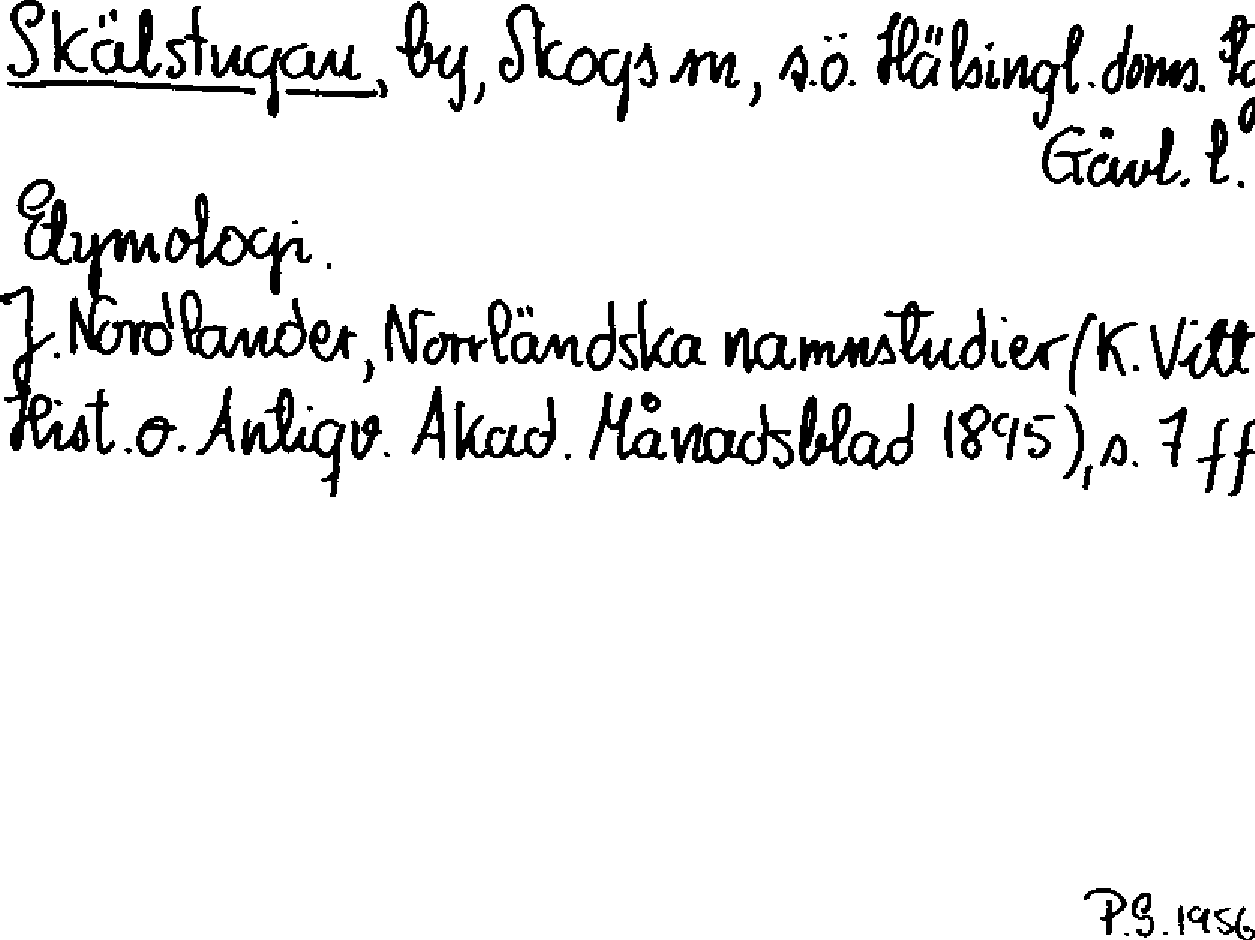 Skälstugan, by, Skogs sn, s.ö. Hälsingl. doms.
Gävl. l.
Etymologi.
J. Nordlander, Norrländska namnstudier (K. Vitt
Hist. o. Antiqv. Akad. Månadsblad 1895), s. 7 ff
P.G. 1956